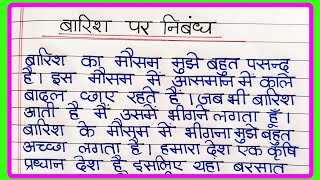 बारिश पर निबंध
बारिश का मौसम मुझे बहुत पसन्द
है। इस मौसम में आसमान में काले
बादल छाए रहते हैं। जब भी बारिश
आती है मैं उसमें भीगने लगता हूँ।
बारिश के मौसम में भीगना मुझे बहुत
अच्छा लगता है। हमारा देश एक कृषि
प्रधान देश है इसलिए यहां बरसात